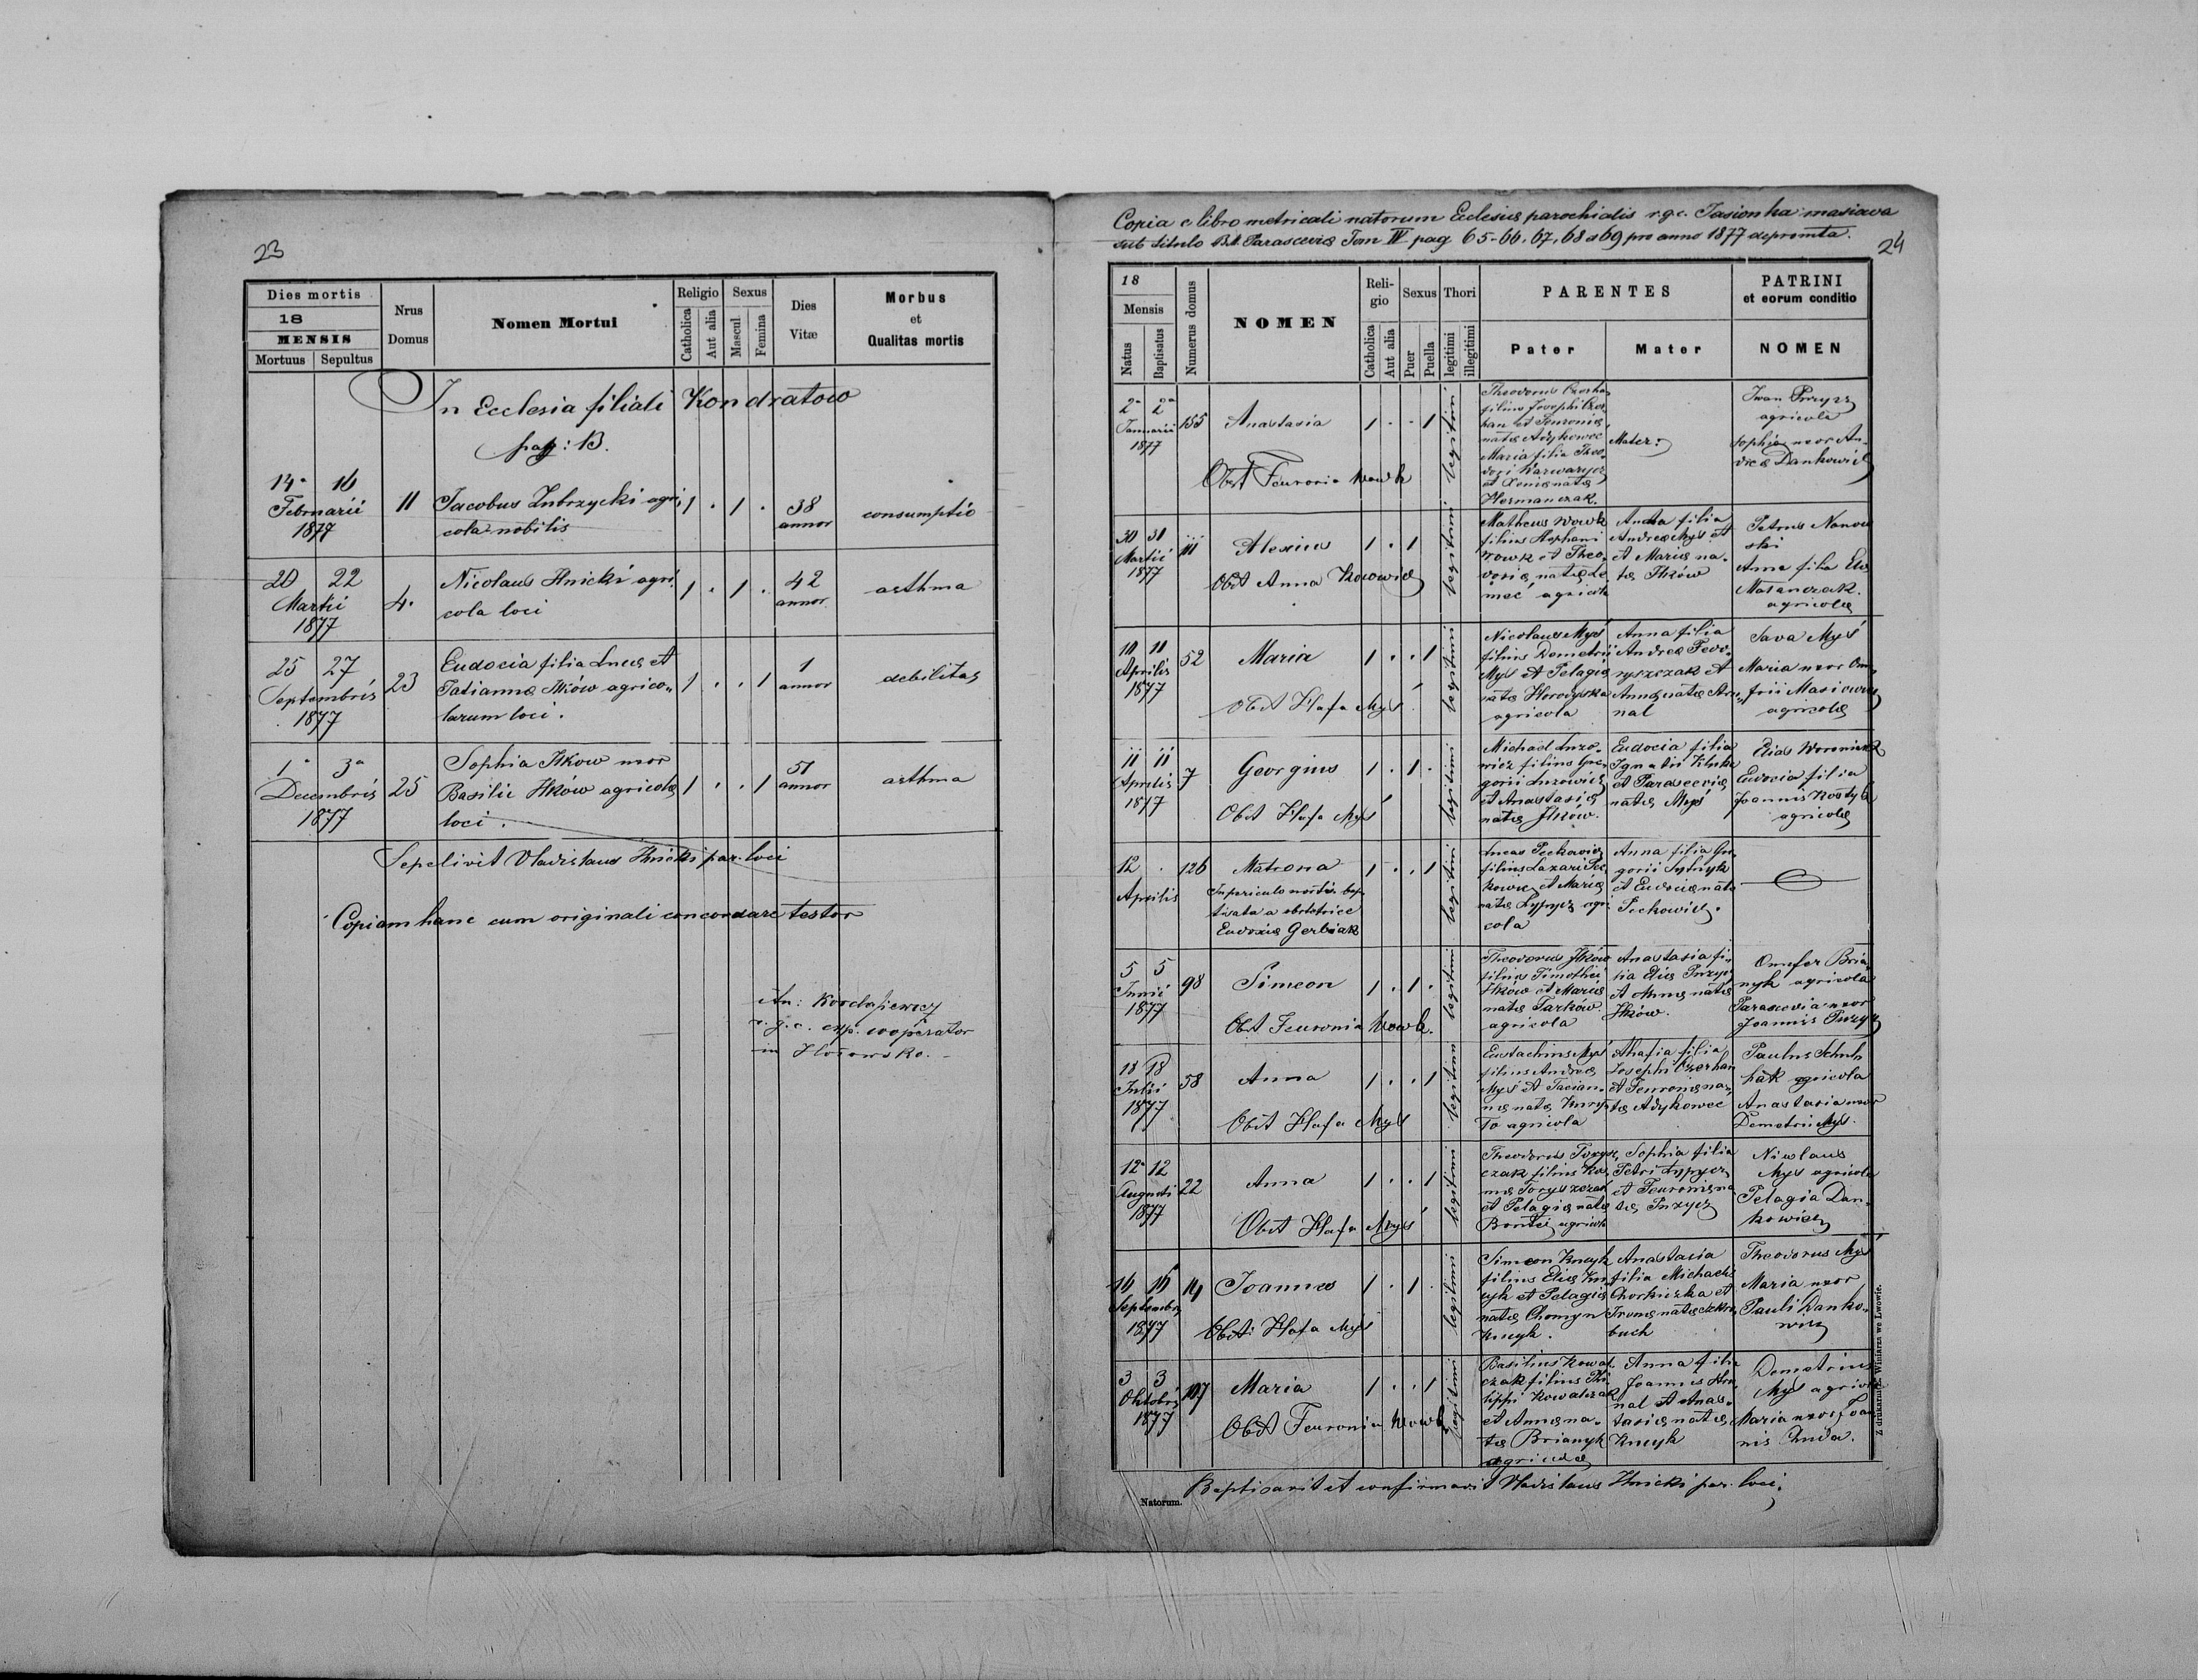 23
Dies mortis
18
MENSIS
Mortuus Sepultus
Nrus
Domus
Nomen Mortui
Religio
Catholica
Aut alia
Sexus
Mascul
Femina
Dies
Vitæ
Morbus
et
Qualitas mortis
In Ecclesia filiali Kondratow
pag: 13.
14a 16
Februarii
1877
11
Jacobus Zubrzycki agri
cola nobilis
1 . 1 .
38
annor
consumptio
20 22
Martii
1877
4.
Nicolaus Ilnicki agri
cola loci
1 . 1 .
42
annor.
asthma
25 27
Septembris
1877
23
Eudocia filia Lucæ et
Tatiannæ Ilków agrico„
larum loci.
1 . . 1
1
annor
debilitas
1a 3a
Decembris
1877
25
Sophia Ilkow uxor
Basilii Ilków agricolæ
loci.
1 . . 1
51
annor
asthma
Sepelivit Vladislaus Ilnicki par. loci
Copiam hanc cum originali concordare testor
r. g. c. exp. cooperator
in
24
Copia e libro metricali natorum Eclesiæ parochialis r.g.c. Jasionka masiowa
sub titulo Bt. Parasceviæ Tom IV pag 65-66, 67, 68 a 69 pro anno 1877 depromta.
18
Mensis
Natus
Baptisatus
Numerus domus
NOMEN
Reli-
gio
Catholica
Aut alia
Sexus
Puer
Puella
Thori
legitimi
illegitimi
PARENTES
Pater
Mater
PATRINI
et eorum conditio
NOMEN
2a 2a
Januarii
1877
155
Anastasia
Obst Feuronia Wowk
1 . . 1
legitimi
Theodorus
filius Josephi
han et Feuroniæ
natæ Adykowec
Maria filia Theo„
dori
et Xeniæ natæ
Hermanczak.
Mater:
Iwan Pyrzyz
agricola
Sophia uxor An„
dreæ Dankowicz
30 31
Martii
1877
111
Alexius
Obst Anna
1 . 1
legitimi
Matheus Wowk
filius Stephani
Wowk et Theo„
dosiæ natæ
agricola
Anna filia
Andreæ Myś et
et Mariæ na„
tæ Ilków
Petrus
ski
Anna filia
agricolæ
10 11
Aprilis
1877
52
Maria
Obst Hafa Myś
1 . . 1
legitimi
Nicolaus Myś
filius Demetrii
Myś et Pelagiæ
natæ
agricola
Anna filia
Andreæ Fedo„
ryszczak et
Annæ natæ Ar„
nal
Sava Myś
Maria uxor Onu„
frii Masiowicz
agricolæ
11 11
Aprilis
1877
7
Georgius
Obst Hafa Myś
1 . 1 .
legitimi
Michael Luzo„
wicz filius Gre„
gorii Luzowicz
et Anastasiæ
natæ Ilków.
Eudocia filia
Ignatii
et Parasceviæ
natæ Myś
Elias
Eudocia filia
Joannis
agricolæ
12 .
Aprilis
126
Matrona
In periculo mortis bap„
tisata a obstetrice
Eudoxia Gerbiak
1 . . 1
legitimi
Lucas Peckowicz
filius Lazari Pec„
kowicz et Mariæ
natæ Lypycz agri
cola
Anna filia Gre„
gorii
et Eudociæ natæ
Peckowicz.
5 5
Junii
1877
98
Simeon
Obst Feuronia Wowk.
1 . 1 .
legitimi
Theodorus Ilków
filius Timothei
Ilków et Mariæ
natæ Tarków.
agricola
Anastasia fi„
lia Eliæ
et Annæ natæ
Ilków.
Onufer Bria„
nyk agricola
Parascevia uxor
Joannis
18 18
Julii
1877
58
Anna
Obst Hafa Myś
1 . . 1
legitimi
Eustachius Myś
filius Andreæ
Myś et Tacian„
næ natæ
agricola
Ahafia filia
Josephi Czerhan
et Feuroniæ na„
tæ Adykowec
Paulus
agricola
Anastasia uxor
Demetrii Myś.
12a 12
Augusti
1877
22
Anna
Obst Hafa Myś
1 . . 1
legitimi
Theodorus
czak filius Kos„
mæ
et Pelagiæ natæ
agricola
Sophia filia
Petri Lypycz
et Feuroniæ na„
tæ
Nicolaus
Myś agricola
Pelagia Dan„
kowicz
16 16
Septembris
1877
14
Joannes
Obst: Hafa Myś
1 . 1 .
legitimi
Simeon Kucyk
filius Eliæ Kuc„
yk et Pelagiæ
natæ Chomyn
Kucyk.
Anastasia
filia Michaelis
et
natæ
buch
Theodorus Myś
Maria uxor
Pauli Danko„
wicz
3 3
Oktobris
1877
107
Maria
Obst Feuronia Wowk
1 . . 1
legitimi
Basilius Kowal„
czak filius Phi„
lippi Kowalczak
et Annæ na„
tæ Brianyk
agricola
Anna filia
Joannis Ar„
nal et Anas„
tasiæ natæ
Kucyk
Demetrius
Myś agricola
Maria uxor Joan
nis
Baptisavit et confirmavit Vladislaus Ilnicki par. loci.
Natorum.
Z drukarni E. Winiarza we Lwowie.